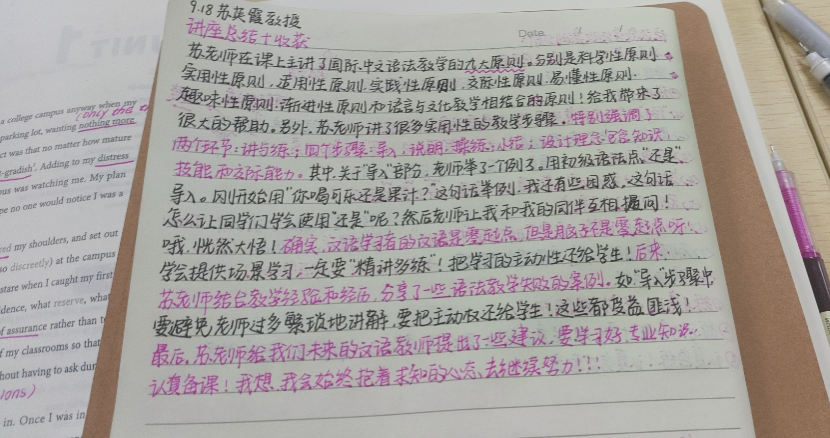 9.18 苏英霞教授
讲座总结+收获
Date
苏老师在课上主讲了国际中文语法教学的九大原则。分别是科学性原则、
实用性原则、适用性原则、实践性原则、交际性原则、易懂性原则、
趣味性原则、渐进性原则和语言与文化教学相结合的原则!给我带来了
很大的帮助。另外,苏老师讲了很多实用性的教学步骤。特别强调了
两个环节:讲与练;四个步骤:导入、说明、操练、小结;设计理念包含知识、
技能和交际能力。其中,关于"导入"部分,老师举了一个例子。用初级语法点"还是"
导入。刚开始用"你喝可乐还是果汁?"这句话举例,我还有些困惑,这句话
怎么让同学们学会使用"还是"呢?然后老师让我和我的同伴互相提问!
哦,恍然大悟!确实,汉语学习者的汉语是零起点,但是脑子不是零起点呀!
学会提供场景学习,一定要"精讲多练"!把学习的主动性还给学生!后来,
苏老师结合教学经验和经历,分享了一些语法教学失败的案例。如"导入"步骤中
要避免老师过多繁琐地讲解,要把主动权还给学生!这些都受益匪浅!
最后,苏老师给我们未来的汉语教师提出了一些建议,要学习好专业知识,
认真备课!我想,我会始终抱着求知的心态,去继续努力!!!
a college campus anyway when my
(only one
parking lot, wanting nothing more
ct was that no matter how mature
-gradish'. Adding to my distress
us was watching me. My plan
pe no one would notice I was a
my shoulders, and set out
so discreetly) at the campus
state when I caught my first
dence, what reserve, what
of assurance rather than
f my classrooms so that
hout having to ask
in. Once I was in